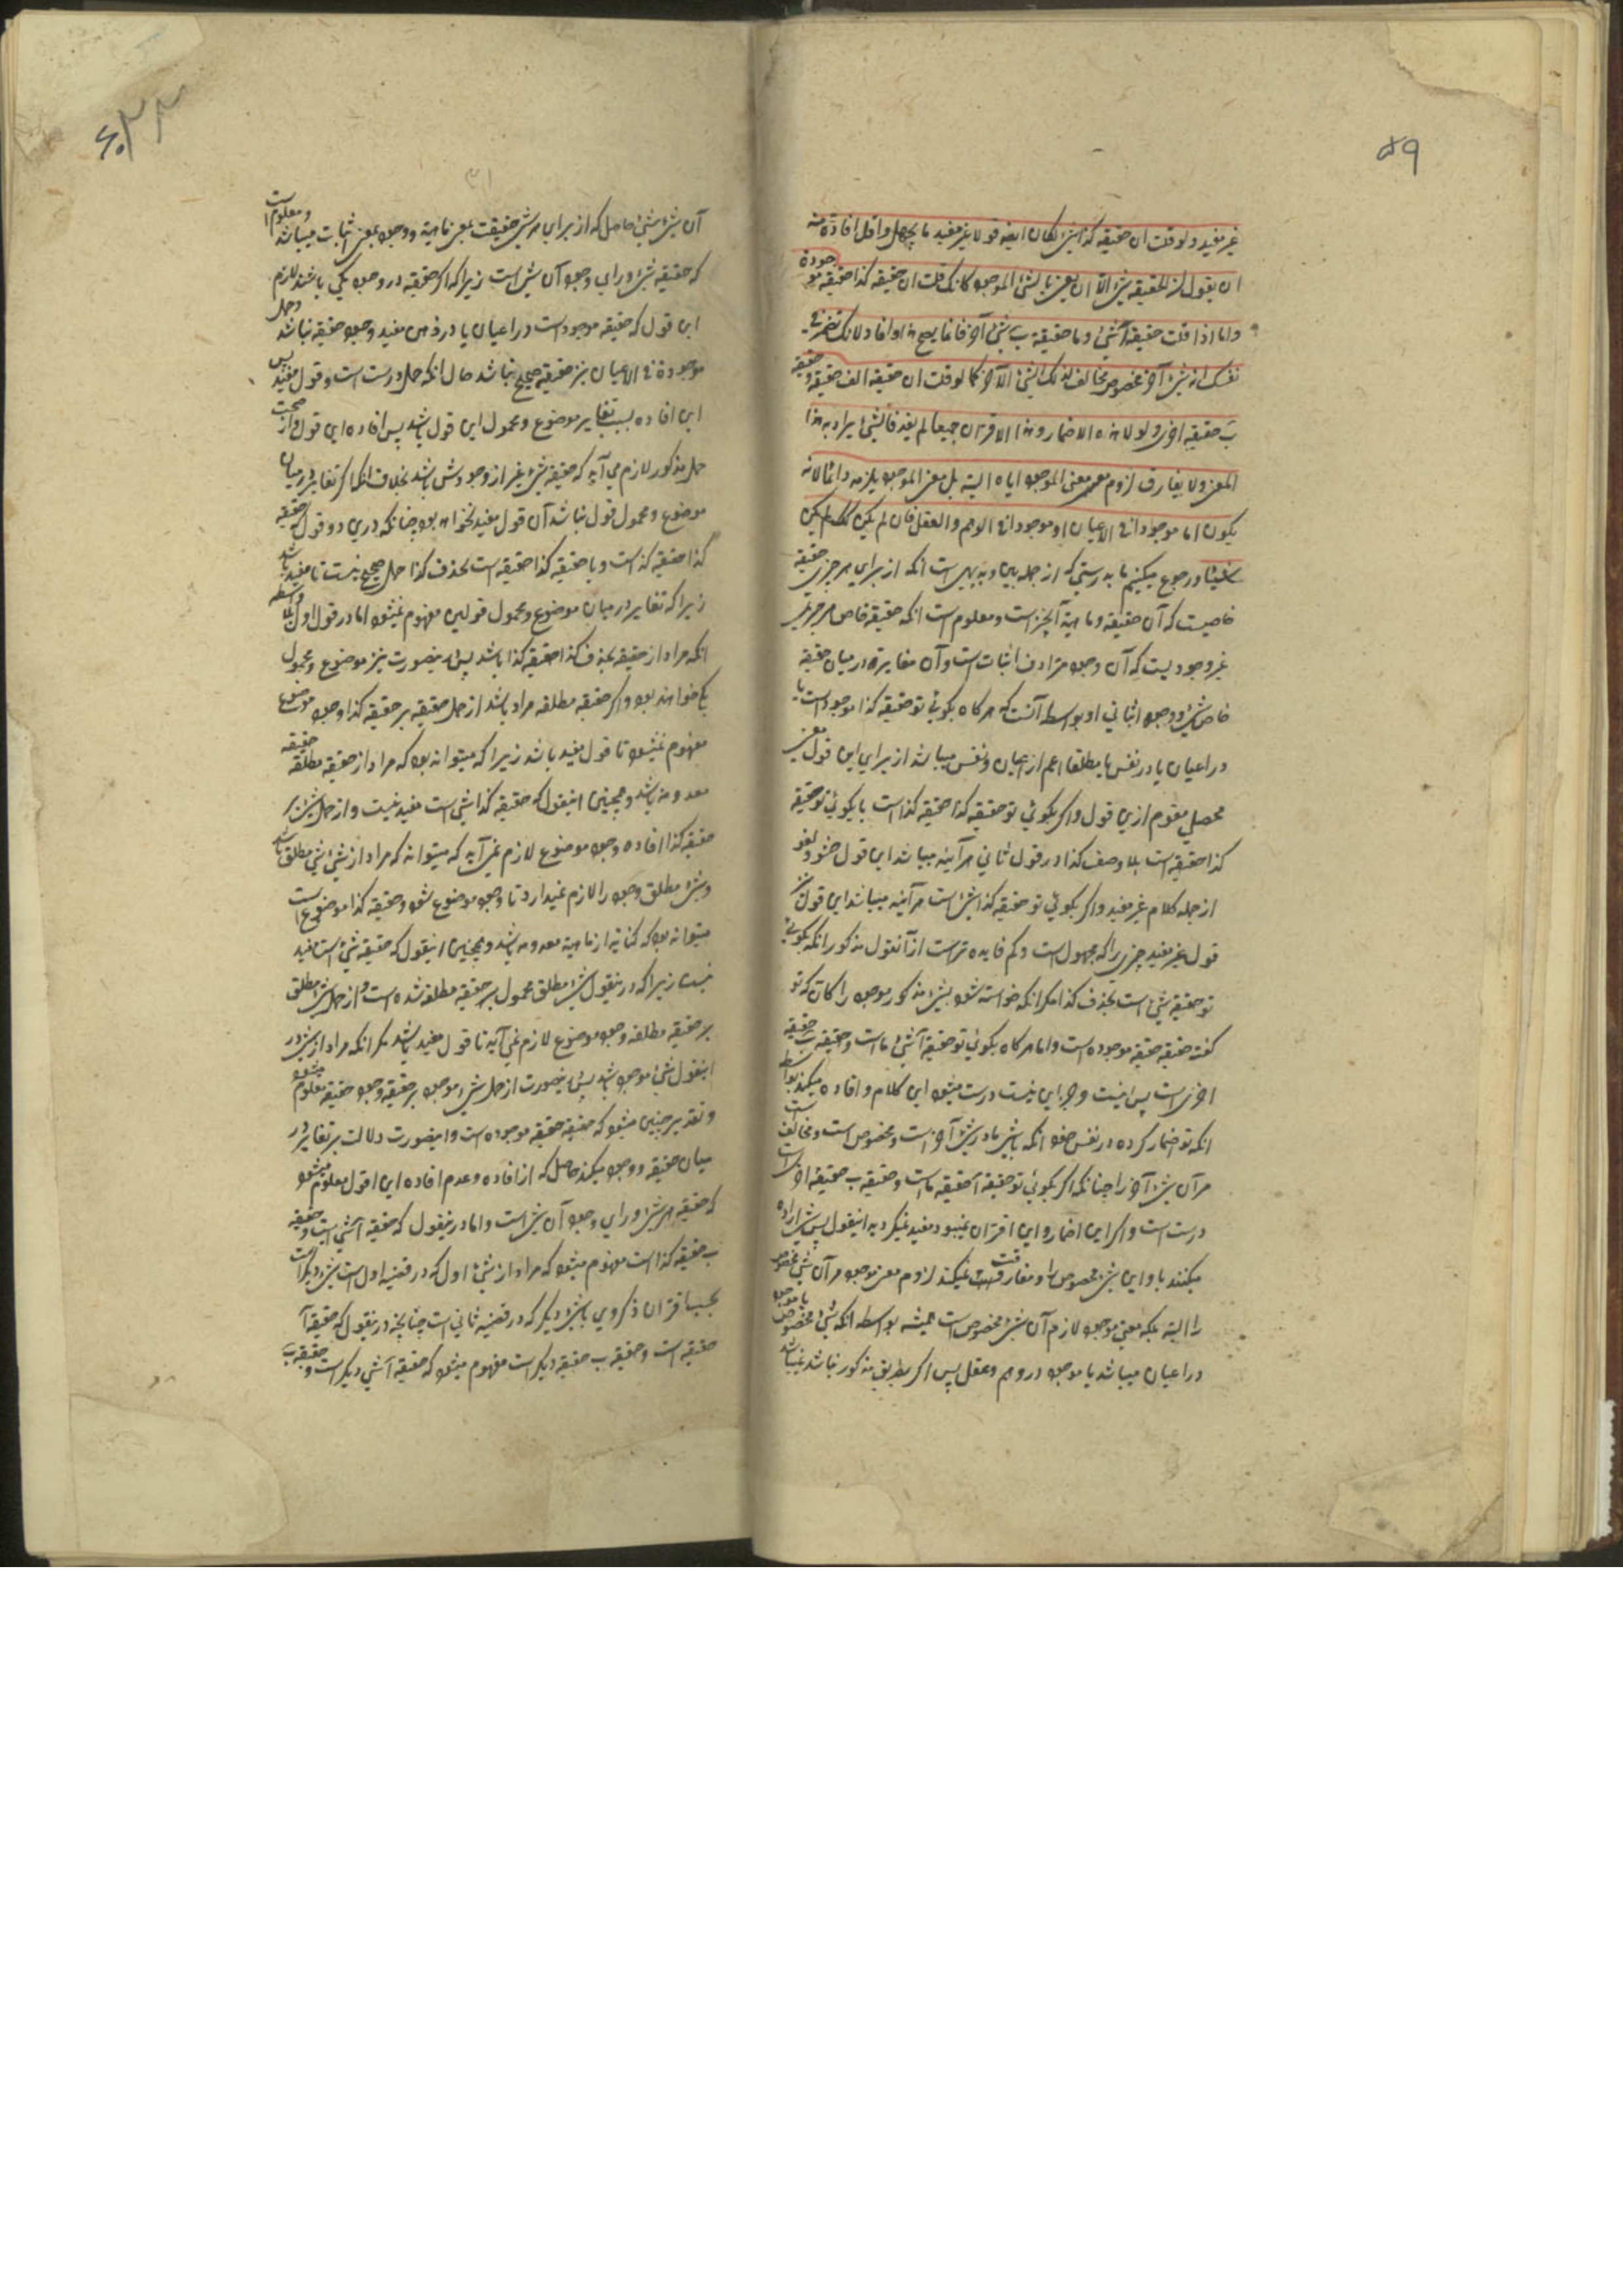 ۵۹
غیر مفید ولو قلت ان حقیقه کذا شئ لکان ایضا قولا غیر مفید ما یجهل واقل افادة منه
ان یقول ان الحقیقه شئ الا ان یعنی بالشئ الموجود کانک قلت ان حقیقه کذا حقیقه موجودة
واما اذا قلت حقیقة آ شئ وما حقیقة ب شئ آخر فانما یصح هذا وافاد لانک تضمر فی
نفسک انه شئ آخر مخصوص مخالف لذلک الشئ الآخر کما لو قلت ان حقیقه الف حقیقه و حقیقه
ب حقیقه اخری ولولا هذه الاضمار وهذا الاقتران جمیعا لم یفد فالشئ یراد به هذا
المعنی ولا یفارق لزوم معنی الموجود ایاه البته بل معنی الموجود یلزمه دائما لانه
یکون اما موجودا فی الاعیان او موجودا فی الوهم والعقل فان لم یکن کذلک لم یکن
شیئا ورجوع میکنیم ما بدرستی که از جمله بین و بدیهی است انکه از برای هر چیزی حقیقه
خاصیست که آن حقیقه وماهیة آنچیز است ومعلوم است انکه حقیقه خاص هر چیزی
غیر وجودیست که آن وجود مترادف اثبات است وآن مغایرة در میان حقیقه
خاص شئ و وجود اثباتی او بواسطه آنست که هر کاه بکوئی تو حقیقه کذا موجود است یا
در اعیان یا در نفس یا مطلقا اعم از اعیان ونفس میباشد از برای این قول معنی
محصلی مفهوم ازین قول واکر بکوئی تو حقیقه کذا حقیقه کذا است یا بکوئی تو حقیقه
کذا حقیقه است بلا وصف کذا در قول ثانی هر آینه میباشد این قول حشو ولغو
از جمله کلام غیر مفید واکر بکوئی تو حقیقه کذا شئ است هر آینه میباشد این قول نیز
قول غیر مفید چیزی را که مجهول است وکم فایده تر است از آنقول مذکور انکه بکوئی
تو حقیقه شئ است بحذف کذا مکر انکه خواسته شود بشئ مذکور موجود را کانه که تو
کفته حقیقه حقیقه موجوده است واما هر کاه بکوئی تو حقیقة آ شئ ما است وحقیقه ب حقیقه
اخری است پس اینست وجز این نیست درست میشود این کلام وافاده میکند بواسطه
انکه تو اضمار کرده در نفس خود انکه شئ ما در شئ آخر است ومخصوص است ومخالف است
مر آن شئ آخر را چنانکه اکر بکوئی تو حقیقة آ حقیقه ما است وحقیقه ب حقیقة اخری است
درست است واکر این اضمار واین اقتران نمیبود مفید نمیکردید اینقول پس شئ اراده
میکنند باو این شئ مخصوص را ومفارقت نمیکند لزوم معنی موجود مر آن شئ مخصوص
را البته بلکه معنی موجود لازم آن شئ مخصوص است همیشه بواسطه انکه شئ مخصوص یا موجود
در اعیان میباشد یا موجود در وهم وعقل پس اکر بطریق مذکور نباشد نمیباشد
آن شئ شئ حاصل که از برای هر شئ حقیقت بمعنی ماهیة ووجود بمعنی اثبات میباشد ومعلوم است
که حقیقه شئ ورای وجود آن شئ است زیرا که اکر حقیقه در وجود یکی باشند لازم
این قول که حقیقه موجود است در اعیان یا در ذهن مفید وجود حقیقه نباشد وحمل
موجودة فی الاعیان نیز حقیقه صحیح نباشد حال انکه حمل درست است وقول مفید پس
این افاده بسبب تغایر موضوع ومحمول این قول باشد پس افاده این قول واز صحت
حمل مذکور لازم می آید که حقیقه شئ غیر از وجودش باشد بخلاف انکه اکر تغایر در میان
موضوع ومحمول قول نباشد آن قول مفید نخواهد بود چنانکه درین دو قول که حقیقه
کذا حقیقه کذا است ویا حقیقه کذا حقیقه است بحذف کذا حمل صحیح نیست تا مفید باشد
زیرا که تغایر در میان موضوع ومحمول قولین مفهوم نمیشود اما در قول اول بلا واسطه
انکه مراد از حقیقه بحذف کذا حقیقه کذا باشد پس اینصورت نیز موضوع ومحمول
یکی خواهند بود واکر حقیقه مطلقه مراد باشد از حمل حقیقه بر حقیقه کذا وجود موضوع
مفهوم نمیشود تا قول مفید باشد زیرا که میتواند بود که مراد از حقیقه مطلقه حقیقه
معدومه باشد وهمچنین اینقول که حقیقه کذا شئ است مفید نیست واز حمل شئ بر
حقیقه کذا افاده وجود موضوع لازم نمی آید که میتواند که مراد از شئ شئ مطلق باشد
وشئ مطلق وجود را لازم نمیدارد تا وجود موضوع بشود وحقیقه کذا موضوع است
میتواند بود که کنایة از ماهیة معدومه باشد وهمچنین اینقول که حقیقه شئ است مفید
نیست زیرا که درینقول شئ مطلق محمول بر حقیقه مطلقه شده است واز حمل شئ مطلق
بر حقیقه مطلقه وجود موضوع لازم نمی آید تا قول مفید باشد مکر انکه مراد از شئ در
اینقول شئ موجود باشد پس اینصورت از حمل شئ موجود بر حقیقه وجود حقیقه معلوم میشود
وتقدیر چنین میشود که حقیقه حقیقه موجوده است واینصورت دلالت بر تغایر در
میان حقیقه ووجود میکند حاصل که از افاده وعدم افاده این اقول معلوم میشود
که حقیقه هر شئ ورای وجود آن شئ است واما درینقول که حقیقه آ شئ است وحقیقه
ب حقیقه کذا است مفهوم میشود که مراد از شئ اول که در قضیه اول است شئ دیکر است
بحسب اقتران ذکر وی باشئ دیکر که در قضیه ثانی است چنانچه درینقول که حقیقه آ
حقیقه است وحقیقه ب حقیقه دیکر است مفهوم میشود که حقیقه آ شئ دیکر است وحقیقه ب